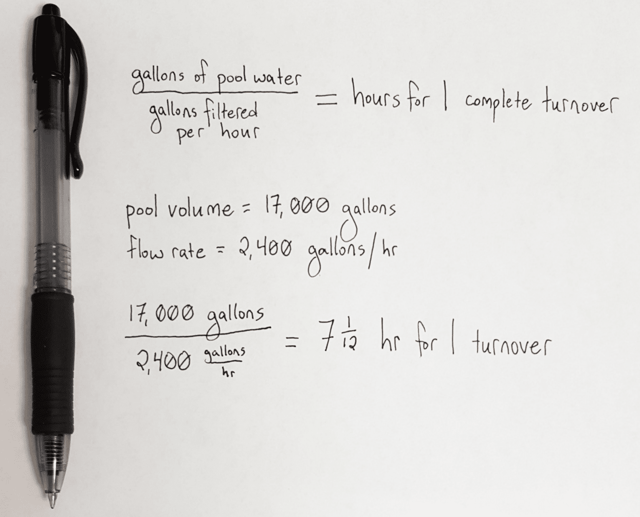 gallons of pool water
gallons filtered
per hour
= hours for 1 complete turnover
pool volume = 17,000 gallons
flow rate = 2,400 gallons/hr
17,000 gallons
2,400 gallons/hr
= 7 1/12 hr for 1 turnover